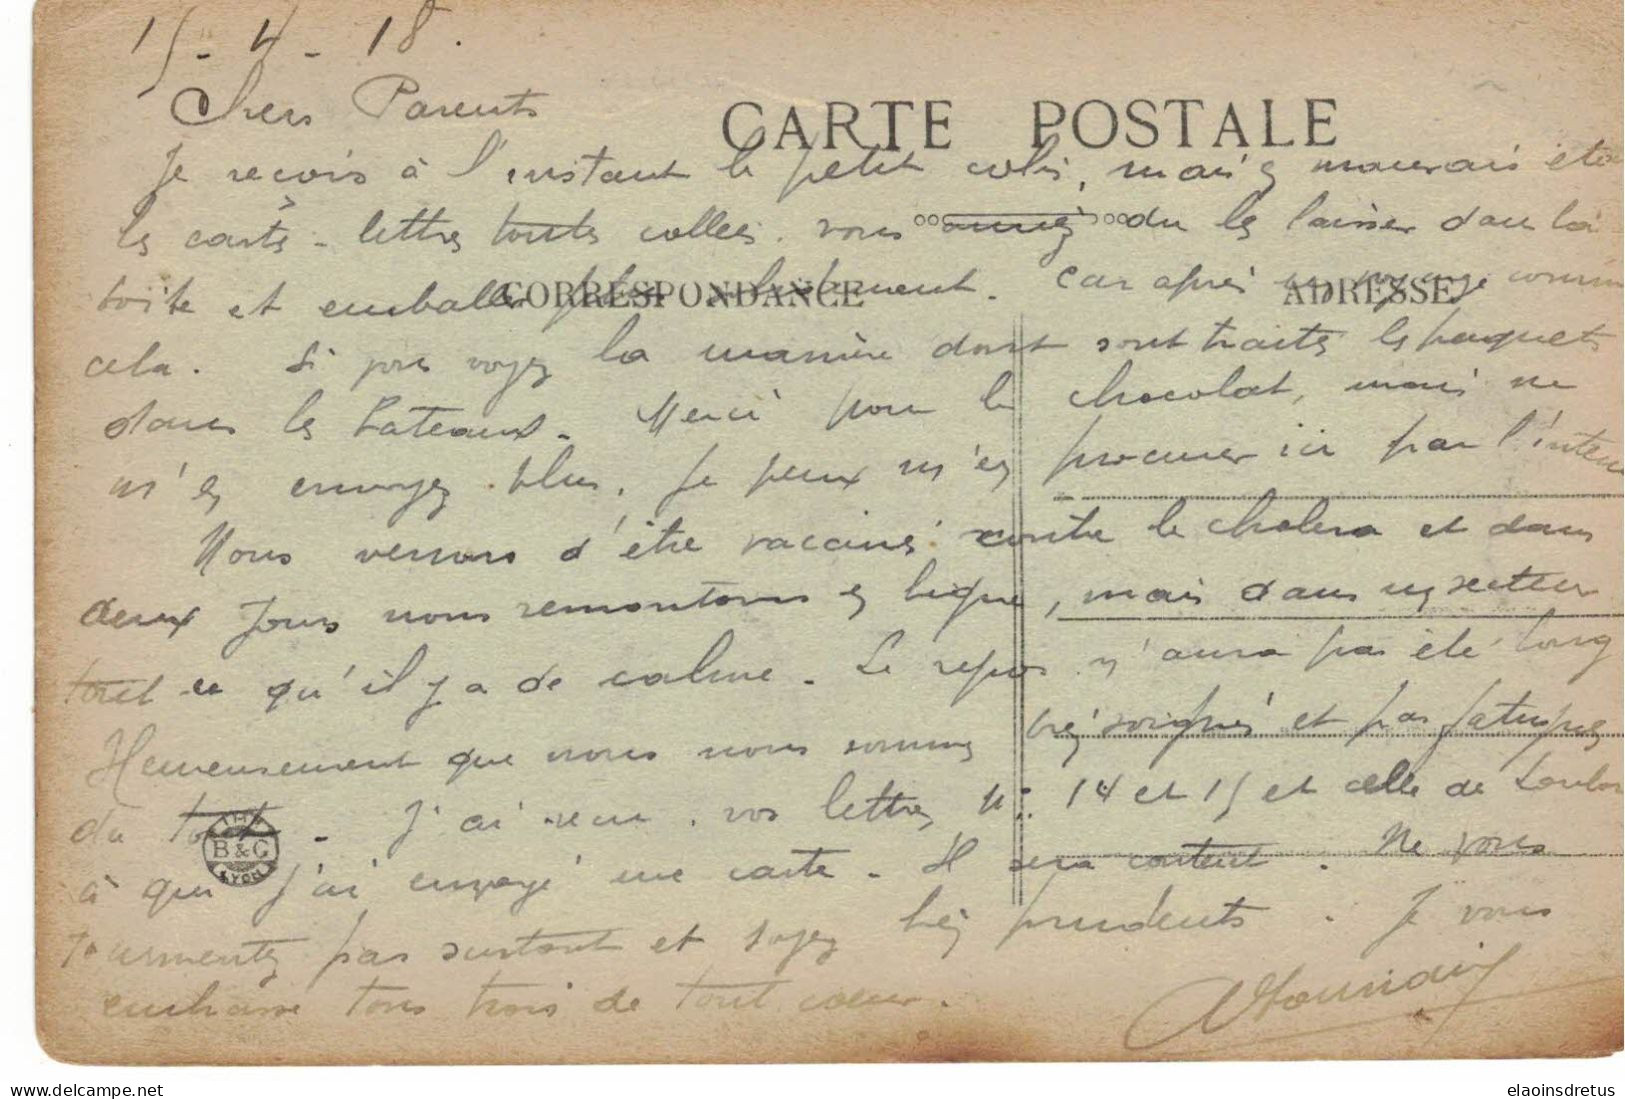 15-4-18.
Chers Parents
CARTE POSTALE
Je reçois à l'instant le petit colis, mais en mauvais état
les cartes-lettres toutes collées. vous auriez du les laisser dans la
CORRESPONDANCE
ADRESSE
boîte et emballer plus solidement. Car après un voyage comme
cela. Si vous voyez la manière dont sont traités les paquets
dans les bateaux. Merci pour le chocolat, mais ne
m'en envoyez plus. Je peux m'en procurer ici par l'inten
Nous venons d'être vaccinés contre le cholera et dans
deux jours nous remontons en ligne, mais dans un secteur
tout ce qu'il y a de calme. Le repos n'aura pas été long
Heureusement que nous nous sommes très soignés et pas fatigués
du tout. J'ai reçu vos lettres No: 14 et 15 et celle de
à qui j'ai envoyé une carte. Il sera content. Ne vous
B&C
LYON
tourmentez pas surtout et soyez très prudents. Je vous
embrasse tous trois de tout coeur.
delcampe.net
elaoinsdretus